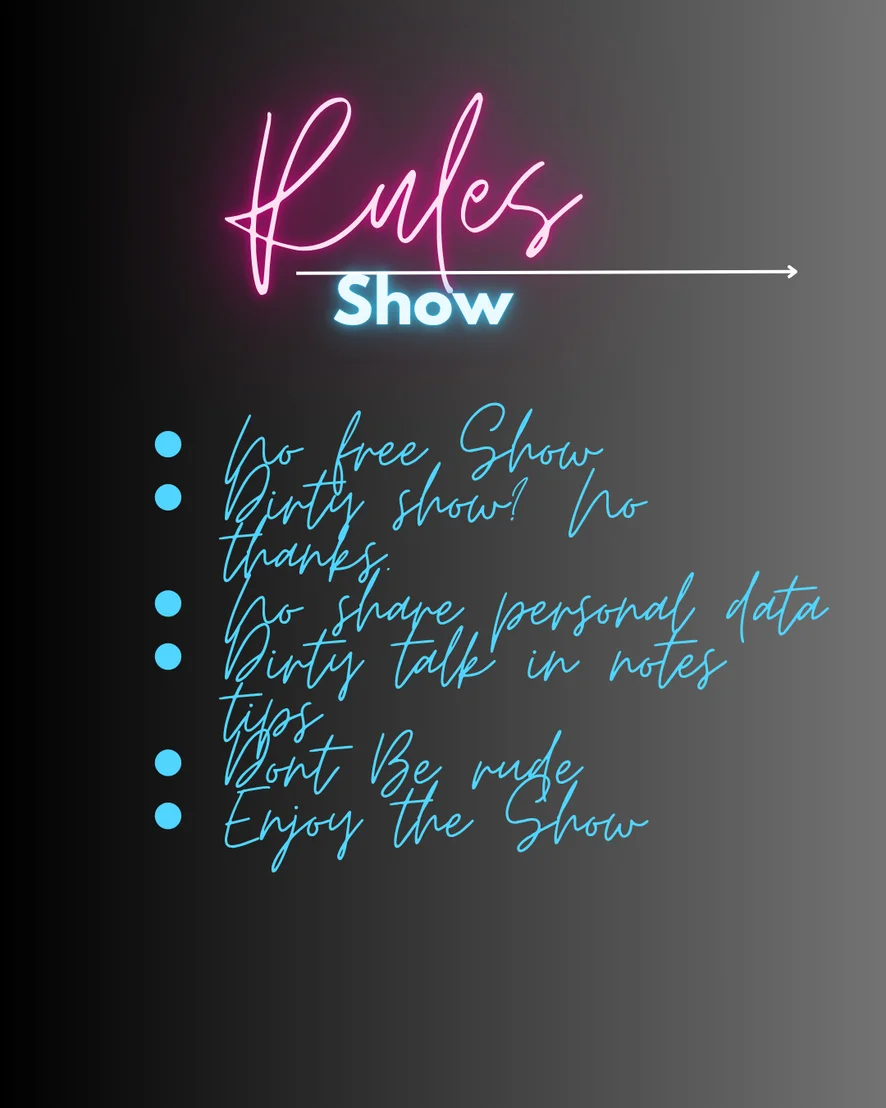 Rules
Show
No free Show
Dirty show? No
thanks.
No share personal data
Dirty talk in notes
tips
Dont Be rude
Enjoy the Show